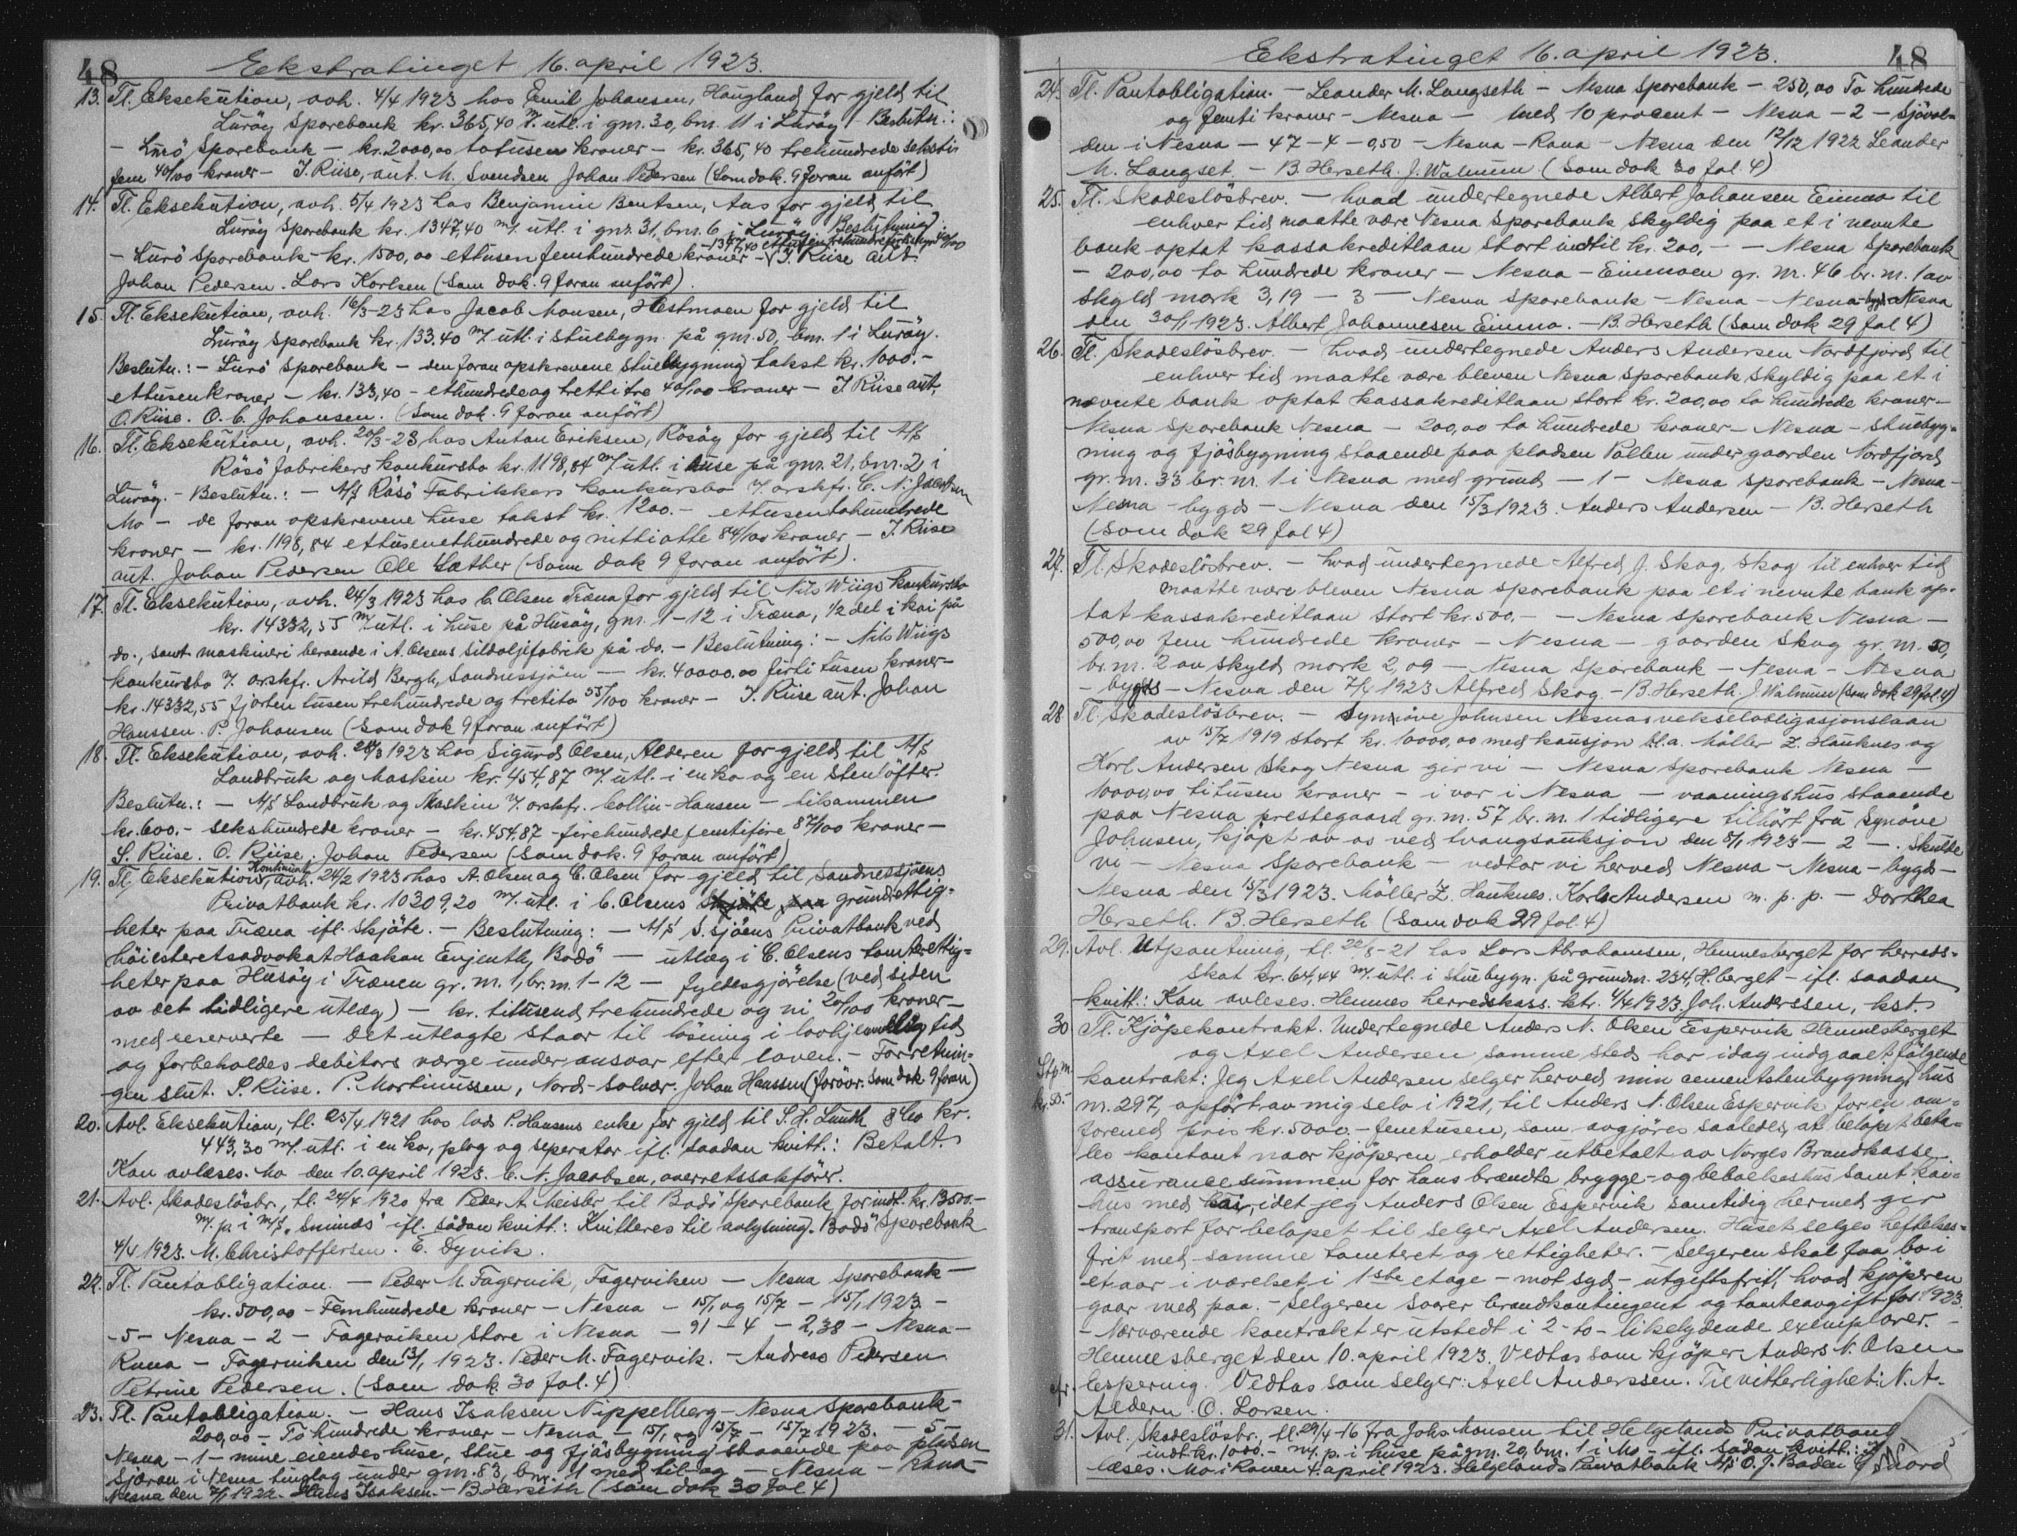 48
Ekstratinget 16. april 1923.
13. Tl. Eksekution, avh. 4/4 1923 hos Emil Johansen, Haugland for gjeld til
Luröy Sparebank kr. 365,40 m/. utl. i gnr. 30, bnr. 11 i Luröy. Beslutn.:
- Lurö Sparebank - kr. 2000,00 totusen kroner - kr. 365,40 trehundrede sekstifem
fem 40/00 kroner - J. Riise, aut. M. Svendsen Johan Pedersen (Som dok. 9 foran anfört)
14. Tl. Eksekution, avh. 5/4 1923 hos Benjamin Bentsen, Aas for gjeld til
Luröy Sparebank kr. 1347,40 m/. utl. i gnr. 31, bnr. 6 i Luröy. Beslutning
- 1347,40 ettusen trehundrede 40/00
- Lurö Sparebank - kr. 1500,00 ettusen femhundrede kroner - J. Riise aut.
Johan Pedersen. Lars Karlsen (Som dok. 9 foran anfört).
15. Tl. Eksekution, avh. 16/3-23 hos Jacob Monsen, Hestmoen for gjeld til
Luröy Sparebank kr. 133,40 m/. utl. i stuebygn. på gnr. 50, bnr. 1 i Luröy.
Beslutn.: - Lurö Sparebank - den foran opskrevene stuebygning takst kr. 1000.-
ettusen kroner - kr. 133,40 - ethundrede og trettitre 40/00 kroner - J. Riise aut.
O. Riise. O. C. Johansen. (Som dok. 9 foran anfört)
16. Tl. Eksekution, avh. 20/3-23 hos Anton Eriksen, Rösöy for gjeld til A/S
Rösö Fabrikers konkursbo kr. 1198,84 m/. utl. i huse på gnr. 21, bnr. 2 i
Luröy. - Beslutn.: - A/S Rösö Fabrikkers konkursbo v. orskfr. C. N. Jacobsen
Mo - de foran opskrevene huse takst kr. 1200.- ettusentohundrede
kroner - kr. 1198,84 ettusenethundrede og nittiotte 84/00 kroner - J. Riise
aut. Johan Pedersen Ole Sæther (Som dok 9 foran anfört).
17. Tl. Eksekution, avh. 24/3 1923 hos C. Olsen Træna for gjeld til Nils Wiigs konkursbo
kr. 14332,55 m/ utl. i huse på Husöy, gnr. 1-12 i Træna, 1/2 del i kai på
do., samt maskineri beroende i A. Olsens sildoljefabrik på do. - Beslutning: - Nils Wiigs
konkursbo v. orskfr. Arild Bergh, Sandnessjöen - kr. 40000,00 förti tusen kroner -
kr. 14332,55 fjorten tusen trehundrede og tretito 55/00 kroner - J. Riise aut. Johan
Hanssen. P. Johansen (Som dok 9 foran anfört)
18. Tl. Eksekution, avh. 24/3 1923 hos Sigurd Olsen, Alderen for gjeld til A/S
Landbruk og Maskin kr. 454,87 m/. utl. i en ko og en stenlöfter.
Beslutn.: - A/S Landbruk og Maskin v. orskfr. Collin-Hansen - tilsammen
kr. 600.- sekshundrede kroner - kr. 454,87 - firehundrede femtifire 87/00 kroner -
S. Riise. O. Riise. Johan Pedersen (Som dok. 9 foran anfört)
19. Tl. Eksekution, avh. 24/2 1923 hos A. Olsen og C. Olsen for gjeld til Sandnessjöens
Privatbank kr. 10309,20 m/. utl. i C. Olsens grundrettig-
heter paa Træna ifl. skjöte. - Beslutning: - A/S S.sjöens Privatbank ved
höiesteretsadvokat Haakon Evjenth, Bodö - utlæg i C. Olsens tomterettig-
heter paa Husöy i Trænen gr. nr. 1, br. nr. 1-12 - fyldesgjörelse (ved siden
av det tidligere utlæg) - kr. titusend trehundrede og ni 20/00 kroner -
med reserverte - Det utlagte staar til lösning i lovhjemlig tid
og forbeholdes debitors værge under ansvar efter loven. - Forretnin-
gen slut. S. Riise. P. Mortinussen, Nord-Solvær. Johan Hanssen (forövr. som dok 9 foran)
20. Avl. Eksekution, tl. 25/4 1921 hos lods P. Hansens enke for gjeld til S. H. Lund kr.
443,30 m/. utl. i en ko, plog og seperator ifl. saadan kvitt.: Betalt.
Kan avlæses. Mo den 10. april 1923. C. N. Jacobsen, overretssakförer.
21. Avl. Skadeslösbr., tl. 24/4 1920 fra Peder A. Meisler til Bodö Sparebank for indt. kr. 13500.-
m/. p. i m/S "Snimås" ifl. sådan kvitt.: Kvitteres til avlysning. Bodö Sparebank
4/4 1923. M. Christoffersen. E. Dyvik.
22. Tl. Pantobligation. - Peder M. Fagervik, Fagerviken - Nesna Sparebank -
kr. 500,00 - Femhundrede kroner - Nesna - 15/1 og 15/7 - 15/1 1923 -
- 5 - Nesna - 2 - Fagerviken store i Nesna - 91 - 4 - 2,38 - Nesna -
Rana - Fagerviken den 13/1 1923. Peder M. Fagervik. - Andreas Pedersen
Petrine Pedersen. (Som dok. 30 fol. 4)
23. Tl. Pantobligation. - Hans Isaksen Nippelberg - Nesna Sparebank -
200,00 - To hundrede kroner - Nesna - 15/1 og 15/7 - 15/7 1923. - 5 -
Nesna - 1 - mine eiendes huse, stue og fjösbygning staaende paa pladsen
Sjöran i Nesna tinglag under gnr. 83, bnr. 11 med tilleg - Nesna - Rana -
Nesna den 1922. Hans Isaksen. - B. Herseth (Som dok 30 fol 4)
48
Ekstratinget 16. april 1923.
24. Tl. Pantobligation. - Leander M. Langseth - Nesna Sparebank - 250,00 To hundrede
og femti kroner - Nesna - med 10 procent - Nesna - 2 - Sjövol-
den i Nesna - 47 - 4 - 0,50 - Nesna - Rana - Nesna den 12/12 1922 Leander
M. Langset. - B. Herseth. J. Walnum (Som dok 30 fol. 4)
25. Tl. Skadeslösbrev. - hvad undertegnede Albert Johansen Einmo til
enhver tid maatte være Nesna Sparebank skyldig paa et i nevnte
bank optat kassakreditlaan stort indtil kr. 200,- - Nesna Sparebank
- 200,00 to hundrede kroner - Nesna - Einmoen gr. nr. 46 br. nr. 1 av
skyld mark 3,19 - 3 - Nesna Sparebank - Nesna - Nesna - bygds - Nesna
den 30/1 1923. Albert Johannesen Einmo. - B. Herseth (Som dok 29 fol 4)
26. Tl. Skadeslösbrev. - hvad undertegnede Anders Andersen Nordfjord til
enhver tid maatte være bleven Nesna Sparebank skyldig paa et i
nævnte bank optat kassakreditlaan stort kr. 200,00 to hundrede kroner -
Nesna Sparebank Nesna - 200,00 to hundrede kroner - Nesna - stuebyg-
ning og fjösbygning staaende paa pladsen Pollen under gaarden Nordfjord
gr. nr. 33 br. nr. 1 i Nesna med grund - 1 - Nesna Sparebank - Nesna -
Nesna - bygds - Nesna den 15/3 1923. Anders Andersen - B. Herseth
(Som dok 29 fol 4)
27. Tl. Skadeslösbrev. - hvad undertegnede Alfred J. Skog, Skog til enhver tid
maatte være bleven Nesna Sparebank paa et i nevnte bank op-
tat kassakreditlaan stort kr. 500.- - Nesna Sparebank Nesna -
500,00 fem hundrede kroner - Nesna - gaarden Skog gr. nr. 50,
br. nr. 2 av skyld mark 2,09 - Nesna Sparebank - Nesna - Nesna
- bygds - Nesna den 7/4 1923 Alfred Skog. - B. Herseth. J. Walnum (Som dok 29 fol 4)
28. Tl. Skadeslösbrev. - Synnöve Johnsen Nesnas vekselobligasjonslaan
av 15/7 1919 stort kr. 10000,00 med kausjon bl.a. Möller Z. Hauknes og
Karl Andersen Skog Nesna gir vi - Nesna Sparebank Nesna -
10000,00 titusen kroner - i vor i Nesna - vaaningshus staaende
paa Nesna prestegaard gr. nr. 57 br. nr. 1 tidligere tilhört fru Synöve
Johnsen, kjöpt av os ved tvangsauksjon den 5/1 1923 - 2 - . Skulde
vi - Nesna Sparebank - vedtar vi herved Nesna - Nesna - bygds -
Nesna den 15/3 1923. Möller Z. Hauknes. Karl Andersen m. p. p. - Dorthea
Herseth. B. Herseth (Som dok 29 fol. 4)
29. Avl. Utpantning, tl. 22/8-21 hos Lars Abrahamsen, Hemnesberget for herreds-
skat kr. 64,44 m/. utl. i stuebygn. på grundnr. 234, H.berget - ifl. saadan
kvitt.: Kan avleses. Hemnes herredskass. ktr. 1/4 1923. Joh. Anderssen, kst.
30 Tl. Kjöpekontrakt. Undertegnede Anders N. Olsen Espervik Hemnesberget
og Axel Andersen samme sted har idag indgaaet fölgende
Stp.m.
kontrakt: Jeg Axel Andersen selger herved min cementstenbygning, hus
kr. 5.-
nr. 297, opfört av mig selv i 1921, til Anders N. Olsen Espervik for en om-
forened pris kr. 5000.- femtusen, som avgjöres saaledes at belöpet beta-
les kontant naar kjöperen erholder utbetalt av Norges Brandkasse
assurancesummen for hans brændte brygge- og beboelseshus samt
hus med kai, idet jeg Anders Olsen Espervik samtidig hermed gir
transport for belöpet til selger Axel Andersen. Huset selges heftelses-
frit med samme tomteret og rettigheter. - Selgeren skal faa bo i
et aar i værelset i 1ste etage - mot syd - utgiftsfrit, hvad kjöperen
gaar med paa. - Selgeren svarer brandkontingent og tomteavgift for 1923
- Nærværende kontrakt er utstedt i 2 - to - likelydende exemplarer. -
Hemnesberget den 10. april 1923. Vedtas som kjöper Anders N. Olsen
Espervig. Vedtas som selger: Axel Anderssen. Til vitterlighet: N. A.
Aldern. O. Larsen.
31. Avl. Skadeslösbr., tl. 29/4-16 fra Johs Monsen til Helgelands Privatbank
indt. kr. 1000.- m/. p. i huse på gnr. 20, bnr. 1 i Mo - ifl. sådan kvitt.:
læses. Mo i Ranen 4. april 1923. Helgelands Privatbank A/S O. J. Baden